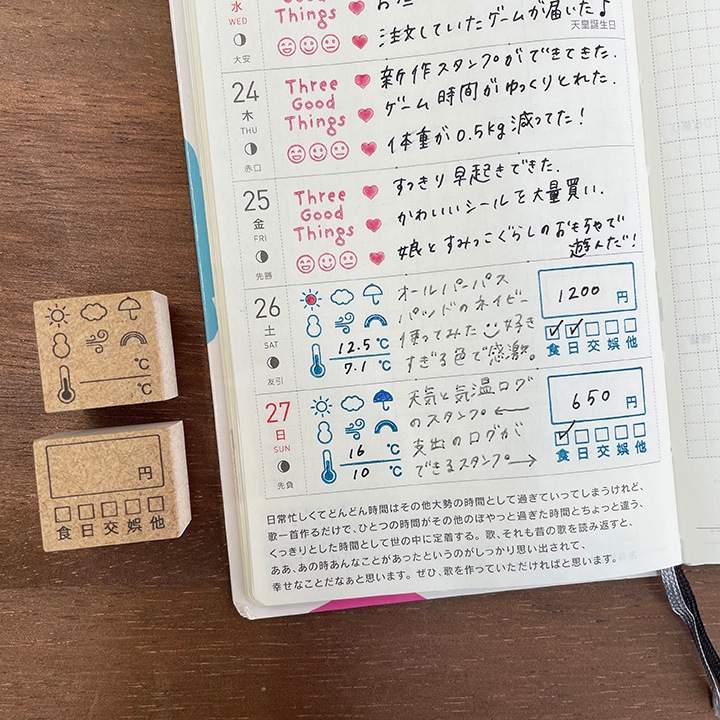 水
WED
大安
Three
Good
Things
注文していたゲームが届いた♪
天皇誕生日
24
木
THU
赤口
Three
Good
Things
新作スタンプができてきた.
ゲーム時間がゆっくりとれた.
体重が0.5kg減ってた!
25
金
FRI
先勝
Three
Good
Things
すっきり早起きできた.
かわいいシールを大量買い.
娘とすみっこぐらしのおもちゃで
遊んだ!
26
土
SAT
友引
12.5℃
7.1℃
オールパーパス
パッドのネイビー
使ってみた 好き
すぎる色で感激。
1200円
食日交娯他
27
日
SUN
先負
16℃
10℃
天気と気温ログ
のスタンプ←
支出のログが
できるスタンプ→
650円
食日交娯他
日常忙しくてどんどん時間はその他大勢の時間として過ぎていってしまうけれど、
歌一首作るだけで、ひとつの時間がその他のぼやっと過ぎた時間とちょっと違う、
くっきりとした時間として世の中に定着する。歌、それも昔の歌を読み返すと、
ああ、あの時あんなことがあったというのがしっかり思い出されて、
幸せなことだなぁと思います。ぜひ、歌を作っていただければと思います。
℃
℃
円
食日交娯他